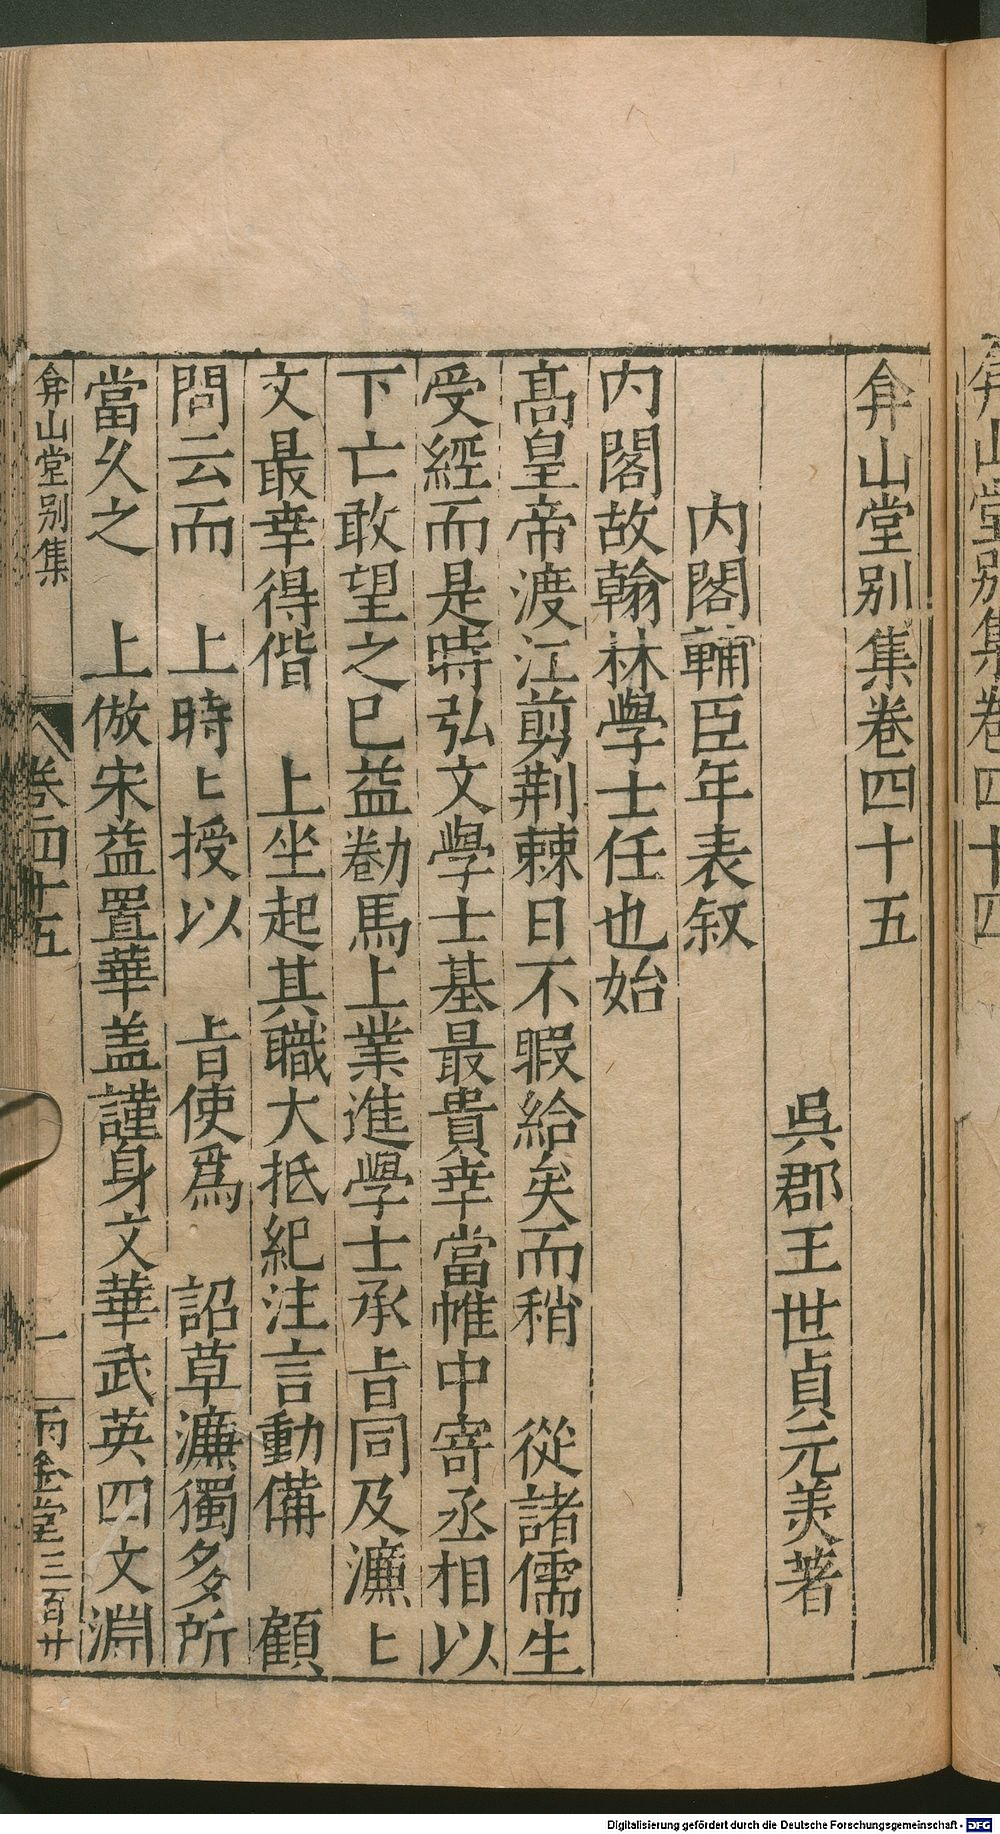 弇山堂别集卷四十五
吳郡王世貞元美著
内閣輔臣年表叙
内閣故翰林學士任也始
高皇帝渡江剪荆棘日不暇給矣而稍　從諸儒生
受經而是時弘文學士基最貴幸當帷中寄丞相以
下亡敢望之已益勸馬上業進學士承旨同及濂〻
文最幸得偕　上坐起其職大抵紀注言動備　顧
問云而　上時〻授以　旨使爲　詔草濂獨多所
當久之　上倣宋益置華盖謹身文華武英四文淵
弇山堂别集
卷四十五
一
雨金堂三百廿
弇山堂别集卷四十四
Digitalisierung gefördert durch die Deutsche Forschungsgemeinschaft - DFG